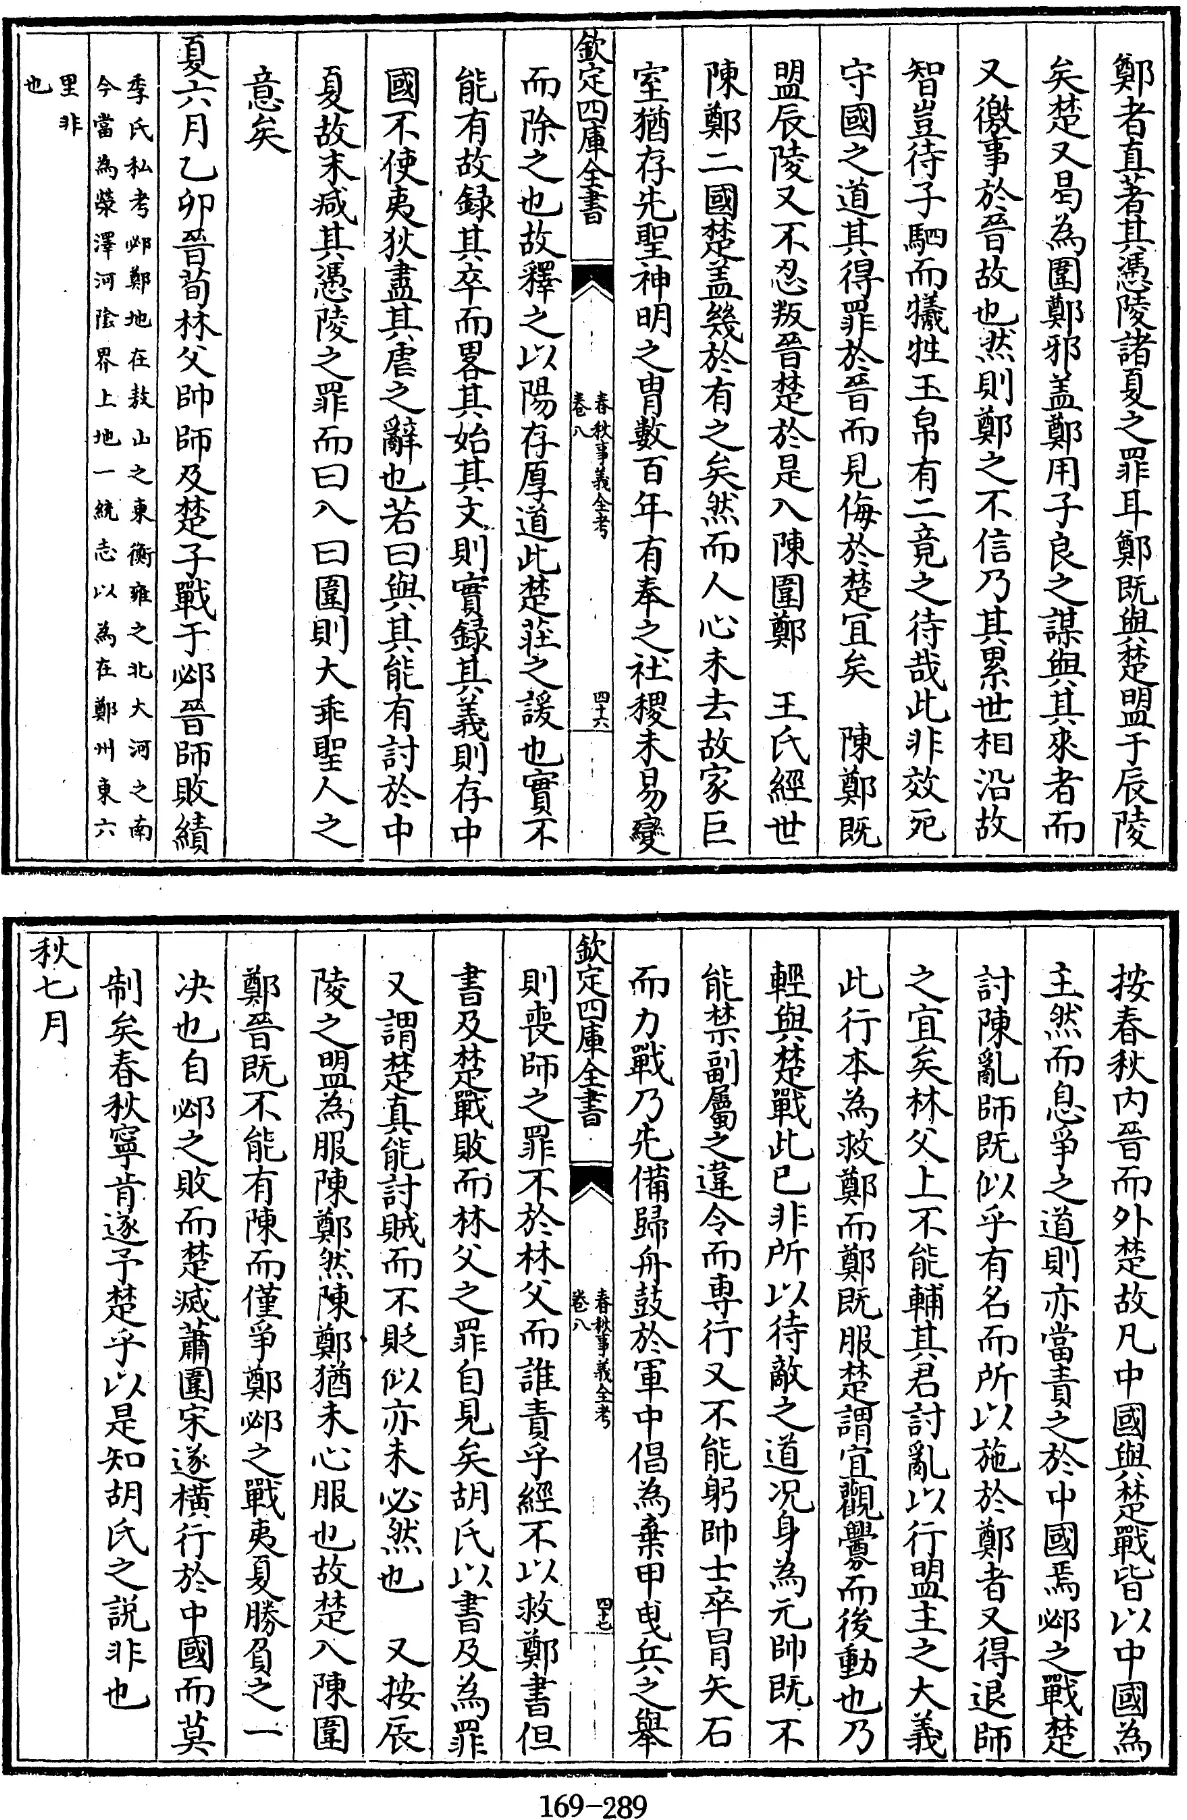 鄭者直著其憑陵諸夏之罪耳鄭既與楚盟于辰陵
矣楚又曷為圍鄭邪盖鄭用子良之謀與其來者而
又徼事於晉故也然則鄭之不信乃其累世相沿故
智豈待子駟而犧牲玉帛有二竟之待哉此非效死
守國之道其得罪於晉而見侮於楚宜矣　陳鄭既
盟辰陵又不忍叛晉楚於是入陳圍鄭　王氏經世
陳鄭二國楚盖幾於有之矣然而人心未去故家巨
室猶存先聖神明之胄數百年有奉之社稷未易變
欽定四庫全書　春秋事義全考卷八　四十六
而除之也故釋之以陽存厚道此楚莊之諼也實不
能有故録其卒而畧其始其文則實録其義則存中
國不使夷狄盡其虐之辭也若曰與其能有討於中
夏故末减其憑陵之罪而曰入曰圍則大乖聖人之
意矣
夏六月乙卯晉荀林父帥師及楚子戰于邲晉師敗績
季氏私考邲鄭地在敖山之東衡雍之北大河之南
今當為滎澤河陰界上地一統志以為在鄭州東六
里非
也
按春秋内晉而外楚故凡中國與楚戰皆以中國為
主然而息爭之道則亦當責之於中國焉邲之戰楚
討陳亂師既似乎有名而所以施於鄭者又得退師
之宜矣林父上不能輔其君討亂以行盟主之大義
此行本為救鄭而鄭既服楚謂宜觀釁而後動也乃
輕與楚戰此已非所以待敵之道况身為元帥既不
能禁副屬之違令而専行又不能躬帥士卒冒矢石
而力戰乃先備歸舟鼓於軍中倡為棄甲曵兵之舉
欽定四庫全書　春秋事義全考卷八　四十七
則喪師之罪不於林父而誰責乎經不以救鄭書但
書及楚戰敗而林父之罪自見矣胡氏以書及為罪
又謂楚真能討賊而不貶似亦未必然也　又按辰
陵之盟為服陳鄭然陳鄭猶未心服也故楚入陳圍
鄭晉既不能有陳而僅爭鄭邲之戰夷夏勝負之一
决也自邲之敗而楚滅蕭圍宋遂横行於中國而莫
制矣春秋寧肯遂予楚乎以是知胡氏之説非也
秋七月
169-289